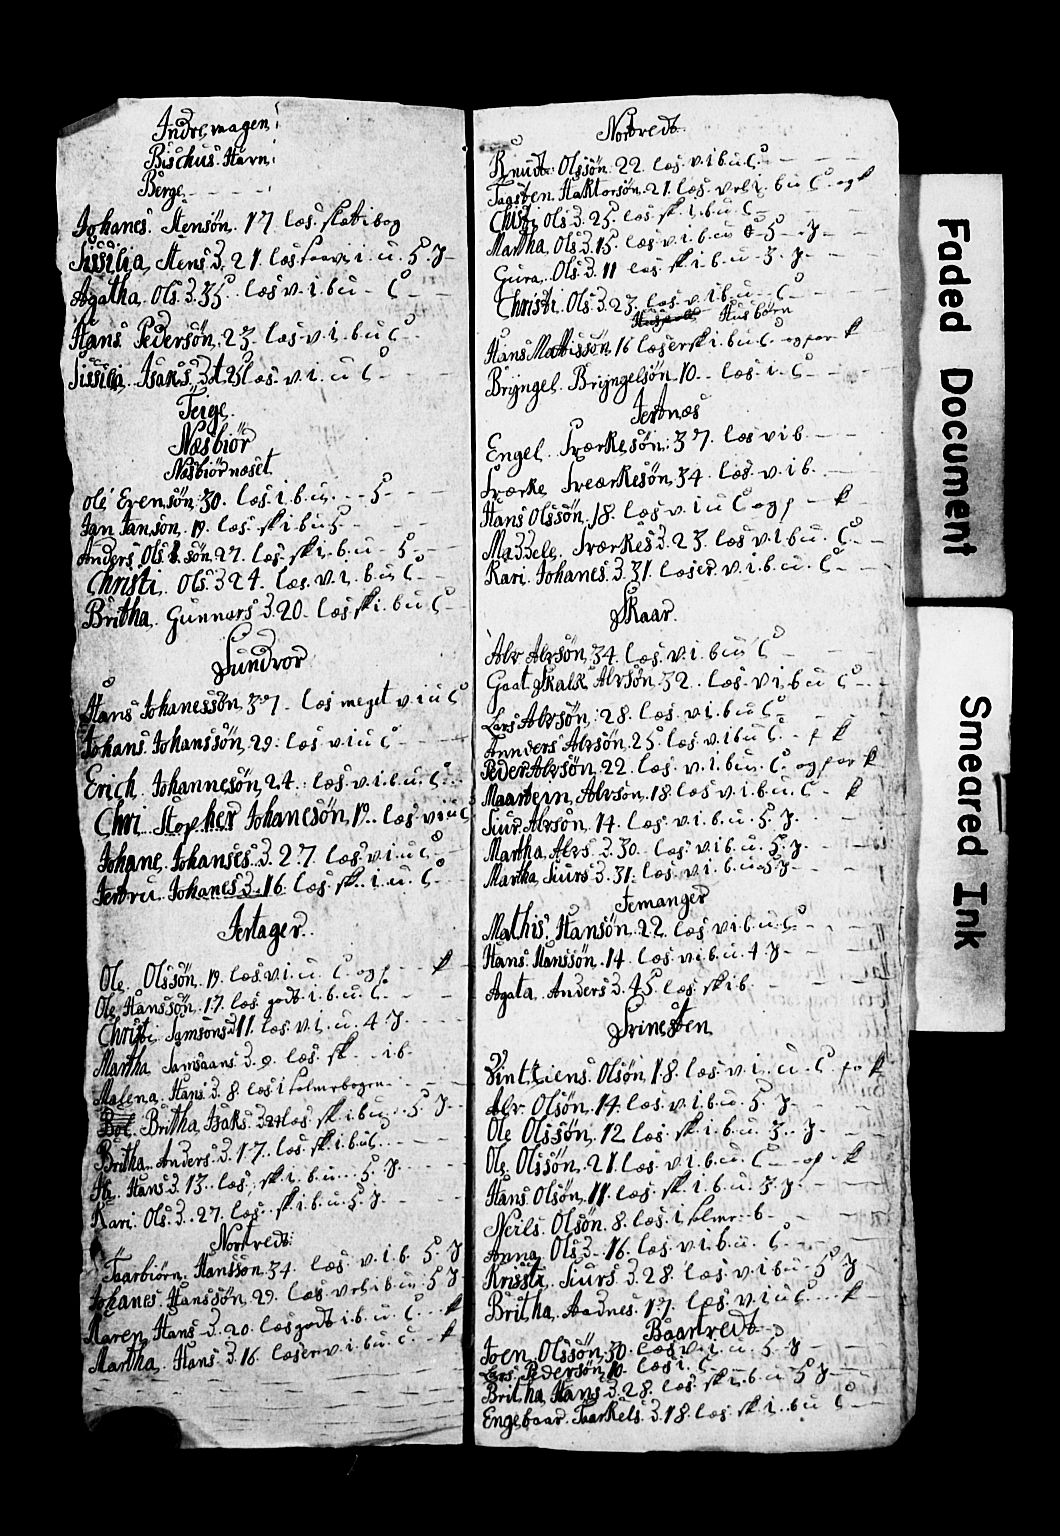 Indre vaagen
Bischus Havn
Berge
Johanes Stensøn 17 læs skatibog
Sissilia Stens D. 21. læs i. u. 5. J
Agatha Ols. D. 35. læs v. i. b u - C
Hans Pedersøn 23. læs v. i. b u C
Sissilia Isaks D læs v. i. u C
Teige
Næsbiör
Næsbiörnæset
Ole Evensøn 30. læs. i. b. u. - 5
Jan Jansøn 19. læs. sk i. b u 5
Anders Ols søn 27. læs sk i. b. u - 5
Christi Ols. D 24. læs. v. i. b u C
Britha Gunnars D. 20. læs sk i. b u C
Sundvor
Hans Johanessøn 37. læs meget v i u C
Johans Johanssøn 29. læs v i u C
Erich Johannesøn 24. læs v. i. b. u. C
Chri Stopher Johanesøn 19. læs v i u C
Johane Johanses D. 27. læs v. i u C
Jertru Johanes D. 16. læs sk. i. u. C
Jertager
Ole Olssøn 19. læs. v. i. u. C. og f - k
Ole Hanssøn 17. læs godt i. b. u. C
Christi Samsons D 11. læs v. i. u. 4. J
Martha Samsaans D. 9. læs. sk. - i b
Malena Hans D. 8. læs i salmebogen
Britha Isaks D læs sk. i b u. 5. J
Britha Anders D. 17. læs. sk. i b u C
Hans D. 13. læs sk i. b u. 5. J
Kari Ols. D. 27. læs. sk i. b. u. 5 J
Nortvedt
Taarbiörn Hanssøn 34. læs. v. i. b. 5. J
Johanes Hanssøn 29. læs vel i b u. 5 J
Maren Hans D. 20. læs godt i. b. u. C. - k
Martha Hans D. 16 læser v. i b. u. C - k
Nortvedt
Knudt Olssøn 22. læs. v. i b u C
Tagsten Haktorsøn 21. læs. vel i. b u C. og f
Christi Ols D. 25. læs. sk. i. b u. C
Martha Ols D. 15. læs v. i. b. u 5 - J
Gura Ols. D. 11 læs sk i. b. u. 3. J
Christi Ols D. 23. læs v. i b. u - C
Husbörn
Hans Mattissøn 16 læser sk i. b u C og for k
Bryngel Bryngelsøn 10. læs i C
Jertnæs
Engel Sværkesøn 37. læs v i b
Sværke Sveærkesøn 34. læs v. i b.
Hans Olssøn 18. læs v. i u C og f - k
Maddele Sværkes D. 23 læs v i b u. C
Kari Johanes D. 31. læser v. i. b. u. C
Skaar
Alv Alvsøn 34. læs. v. i. b u C
Gaat Skalk Alvsøn 32. læs. v i b u C
Lars Alvsøn 28. læs v i. b u C
Annders Alvsøn 25. læs v. i b u C. - f k
Peder Alvsøn 22. læs v. i. b u. C. og for k
Maartein Alvsøn 18. læs v i. b. u. C - k
Siur Alvsøn 14. læs v. i. b. u. 5. J
Martha Alvs D. 30. læs v i b. u. 5. J
Martha Siurs D. 31. læs v. i. b. u 5 J
Jemanger
Mathis Hansøn 22. læs v i b. u C
Hans Hanssøn 14. læs v i b. u 4. J
Agata Anders D. 45. læs sk i b
Srinesten
Olsøn 18. læs. v. i. u. C for k
Alv Olsøn 14. læs. v. i. b. u. 5. J
Ole Olssøn 12 læs. sk i. b u. 3. J
Ole Olssøn 21. læs v. i. b. u. C - of - k
Hans Olsøn 11. læs sk. i b. u. 3 J
Neils Olsøn 8. læs i salme - b
Anna Ols D. 16. læs v. i. b. u. C
Kristi Siurs D. 28. læs v. i b u 5 J
Britha Aadnes 17. læs v. i u C - k
Baartvedt
Joen Olssøn 30. læs v i u. 5 J
Lars Pedersøn 10. læs i. C
Britha Hans D. 28. læs sk i. b. u 5 J
Engebaar Taarkels D. 18. læs sk i. b u C
Faded Document
Smeared Ink